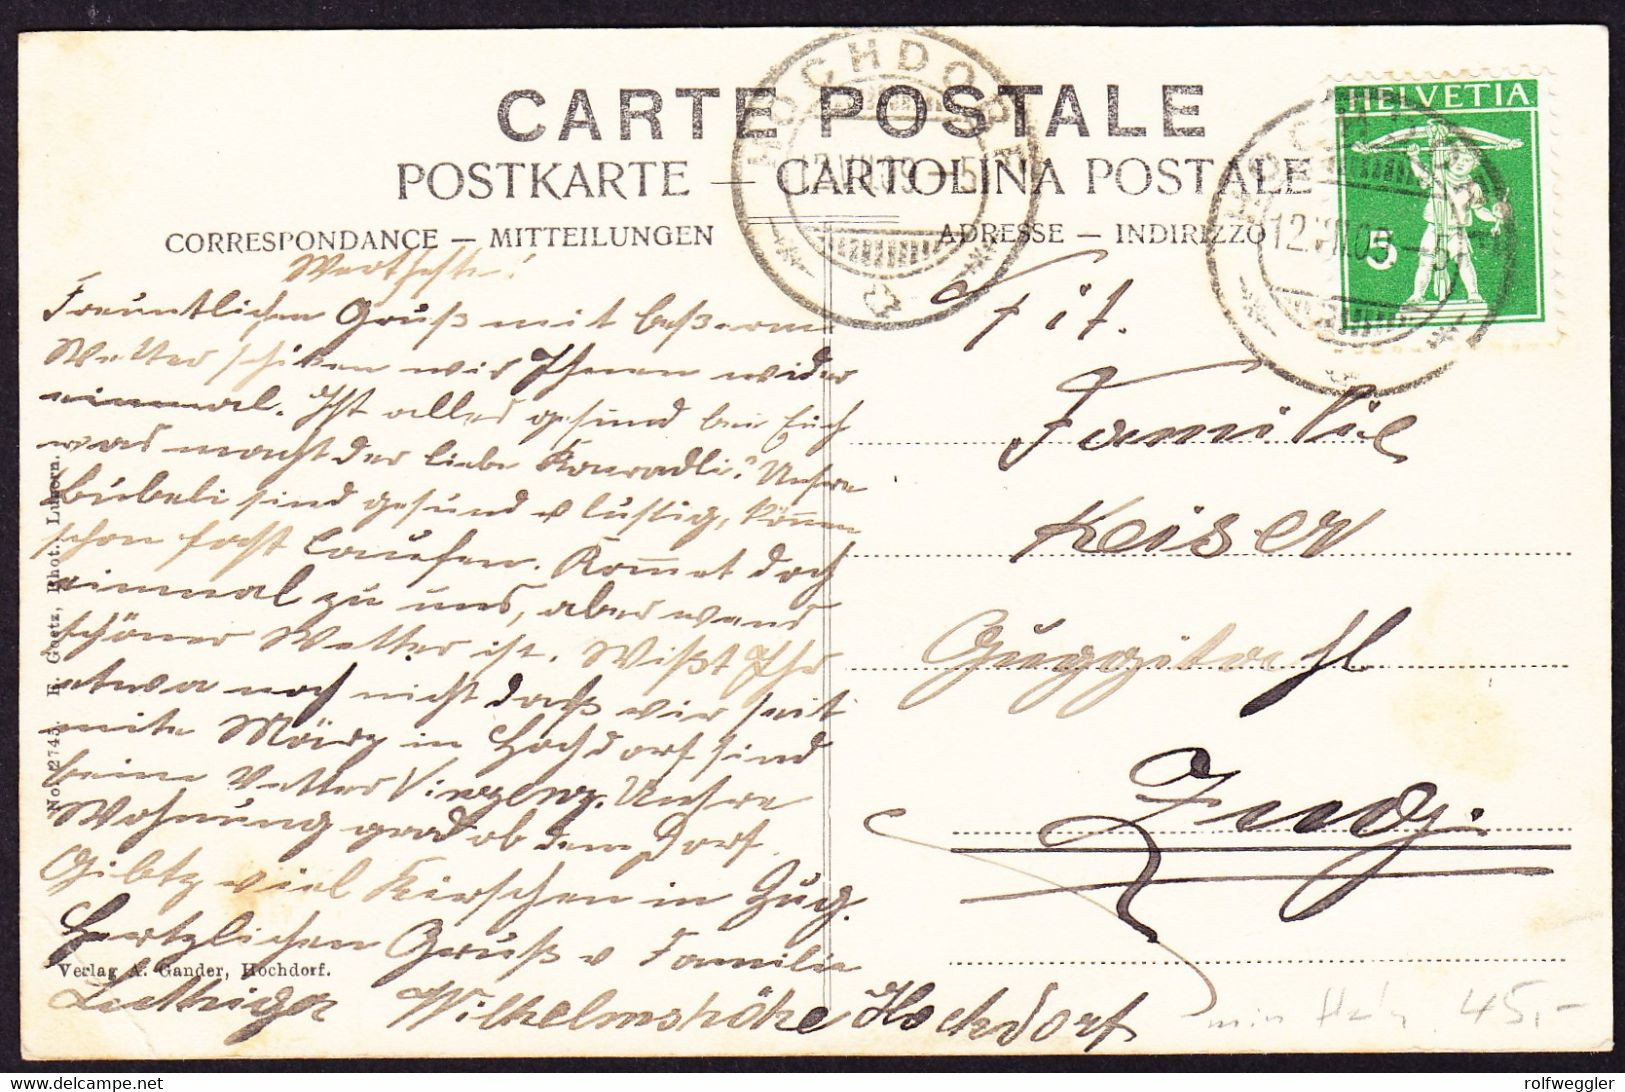 CARTE POSTALE
POSTKARTE — CARTOLINA POSTALE
CORRESPONDANCE — MITTEILUNGEN
ADRESSE — INDIRIZZO
HOCHDORF
12.VII.09.-5
HOCHDORF
12.VII.09.-5
HELVETIA
5
Wertheste!
Freuntlichen Gruß mit beßerem
Wetter schiken wir Ihnen wider
einmal. Ist alles gesund bei Euch
was macht der liebe Konradli? Unsre
Bubeli sind gesund u lustig, können
schon fast laufen. Kommet doch
einmal zu uns, aber wens
schöner Wetter ist. Wißt Ihr
etwa noch nicht daß wir seit
mite März in Hochdorf sind
beim Vetter Vinzenz. Unsre
Wohnung grad ob dem Dorf.
Gibtz viel Kirschen in Zug.
Hertzlichen Gruß v Familie
Luthiger Wilhelmshöhe Hochdorf
Tit.
Familie
Keiser
Guggital
Zug.
No. 2745. E. Goetz, Phot., Luzern.
Verlag A. Gander, Hochdorf.
45,-
rolfweggler